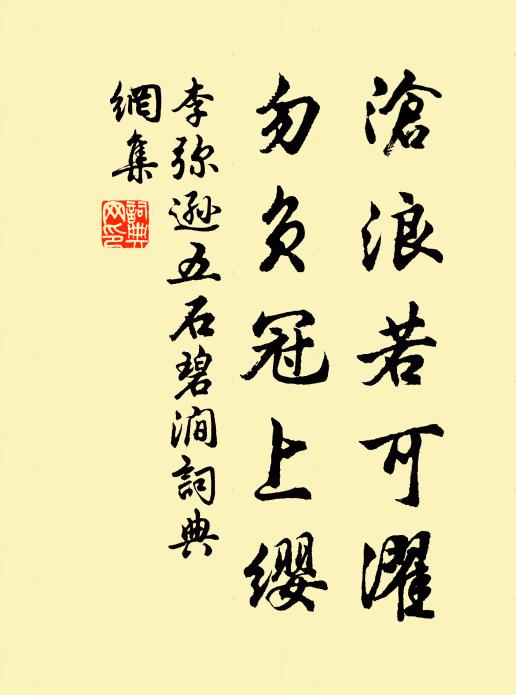 滄浪若可濯
勿負冠上纓
李弥遜五石碧澗詞典
網集
詞典網印